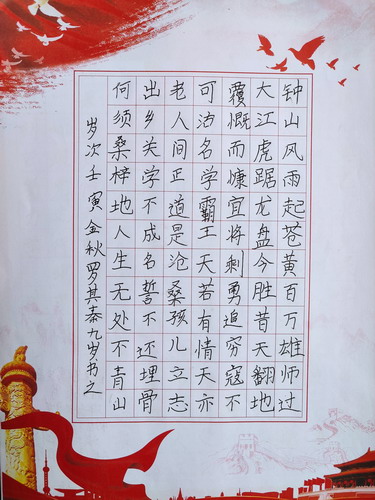 钟山风雨起苍黄百万雄师过
大江虎踞龙盘今胜昔天翻地
覆慨而慷宜将剩勇追穷寇不
可沽名学霸王天若有情天亦
老人间正道是沧桑孩儿立志
出乡关学不成名誓不还埋骨
何须桑梓地人生无处不青山
岁次壬寅金秋罗其泰九岁书之